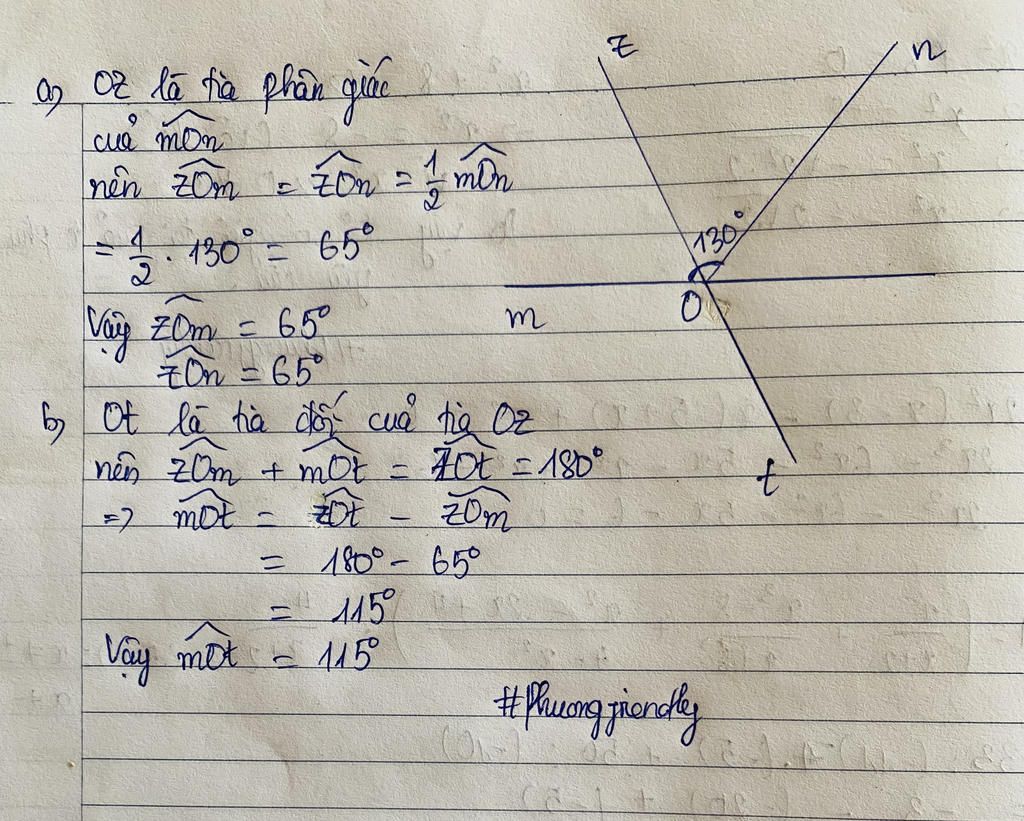 a) Oz là tia phân giác
của mOn
nên zOm = zOn = 1/2 mOn
= 1/2 . 130° = 65°
Vậy zOm = 65°
zOn = 65°
b) Ot là tia đối của tia Oz
nên zOm + mOt = zOt = 180°
=> mOt = zOt - zOm
= 180° - 65°
= 115°
Vậy mOt = 115°
#Phuongfriendly
z
n
130°
m
O
t